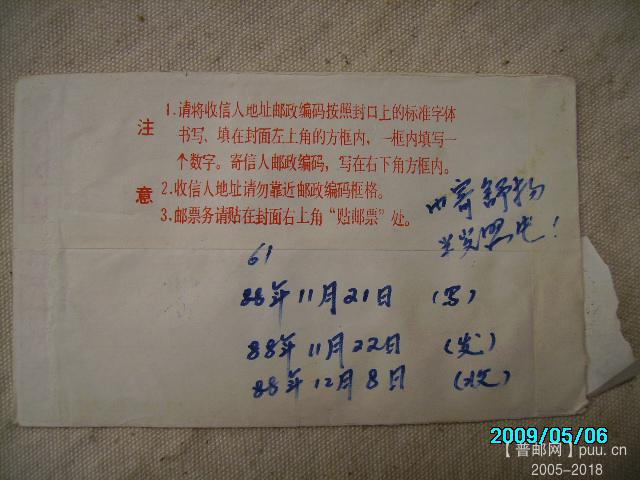 注意
1.请将收信人地址邮政编码按照封口上的标准字体
书写、填在封面左上角的方框内，一框内填写一
个数字。寄信人邮政编码，写在右下角方框内。
2.收信人地址请勿靠近邮政编码框格。
3.邮票务请贴在封面右上角“贴邮票”处。
寄舒扬
61
88年11月21日 (写)
88年11月22日 (发)
88年12月8日 (收)
2009/05/06
【普邮网】puu.cn
2005-2018